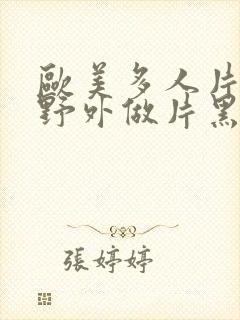 歐美多人片
野外做片黑
張婷婷